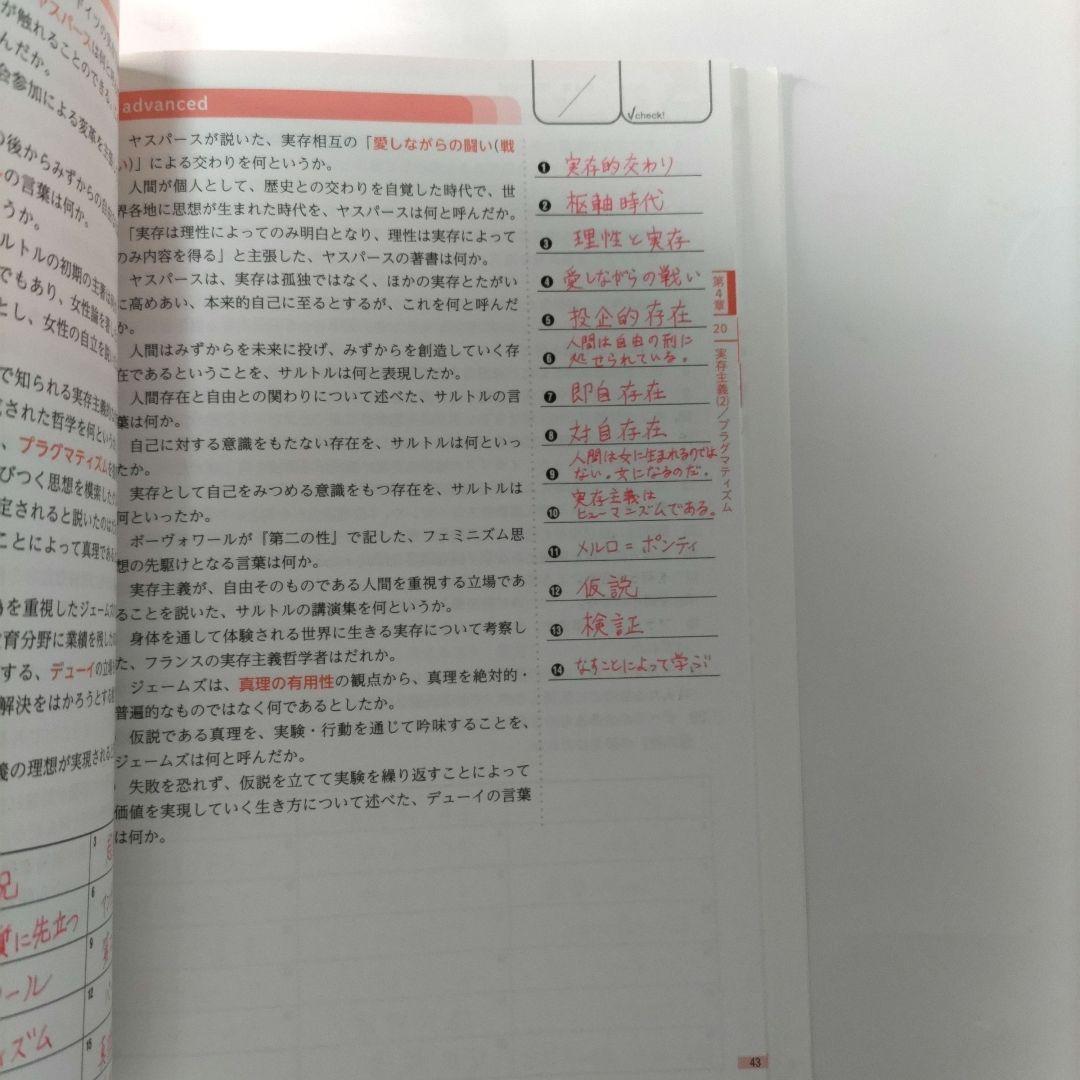 ドイツの
ヤスパースは何と
が触れることのできる
んだか。
会参加による変革を主張
の後からみずからの自由
の言葉は何か。
うか。
ルトルの初期の主著は
でもあり、女性論を著し
とし、女性の自立を説い
で知られる実存主義
された哲学を何という
、プラグマティズムを
びつく思想を模索した
定されると説いたのは
ことによって真理である
為を重視したジェームズ
育分野に業績を残した
する、デューイの立場
解決をはかろうとする
義の理想が実現される
3
況
6
質に先立つ
9
ール
12
ィズム
15
advanced
ヤスパースが説いた、実存相互の「愛しながらの闘い(戦
い)」による交わりを何というか。
人間が個人として、歴史との交わりを自覚した時代で、世
界各地に思想が生まれた時代を、ヤスパースは何と呼んだか。
「実存は理性によってのみ明白となり、理性は実存によって
のみ内容を得る」と主張した、ヤスパースの著書は何か。
ヤスパースは、実存は孤独ではなく、ほかの実存とたがい
に高めあい、本来的自己に至るとするが、これを何と呼んだ
か。
人間はみずからを未来に投げ、みずからを創造していく存
在であるということを、サルトルは何と表現したか。
人間存在と自由との関わりについて述べた、サルトルの言
葉は何か。
自己に対する意識をもたない存在を、サルトルは何といっ
たか。
実存として自己をみつめる意識をもつ存在を、サルトルは
何といったか。
ボーヴォワールが『第二の性』で記した、フェミニズム思
想の先駆けとなる言葉は何か。
実存主義が、自由そのものである人間を重視する立場であ
ることを説いた、サルトルの講演集を何というか。
身体を通して体験される世界に生きる実存について考察し
た、フランスの実存主義哲学者はだれか。
ジェームズは、真理の有用性の観点から、真理を絶対的・
普遍的なものではなく何であるとしたか。
仮説である真理を、実験・行動を通じて吟味することを、
ジェームズは何と呼んだか。
失敗を恐れず、仮説を立てて実験を繰り返すことによって
価値を実現していく生き方について述べた、デューイの言葉
は何か。
/
✓check!
❶ 実存的交わり
❷ 枢軸時代
❸ 理性と実存
❹ 愛しながらの戦い
❺ 投企的存在
❻ 人間は自由の刑に
処せられている。
❼ 即自存在
❽ 対自存在
❾ 人間は女に生まれるのでは
ない。女になるのだ。
❿ 実存主義は
ヒューマニズムである。
⓫ メルロ=ポンティ
⓬ 仮説
⓭ 検証
⓮ なすことによって学ぶ
第4章
20
実存主義(2)/プラグマティズム
43